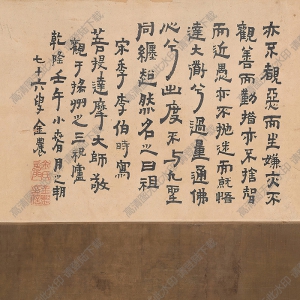 亦不覩惡而生嫌亦不
觀善而勤措亦不捨智
而近愚亦不拋迷而就悟
達大衜兮過量通佛
心兮出度不与凡聖
同纏超然名之曰祖
宋季李伯時寫
菩提達摩大師敬
觀于揚州之三祝廬
乾隆壬午小春月之朝
七十六叟金農